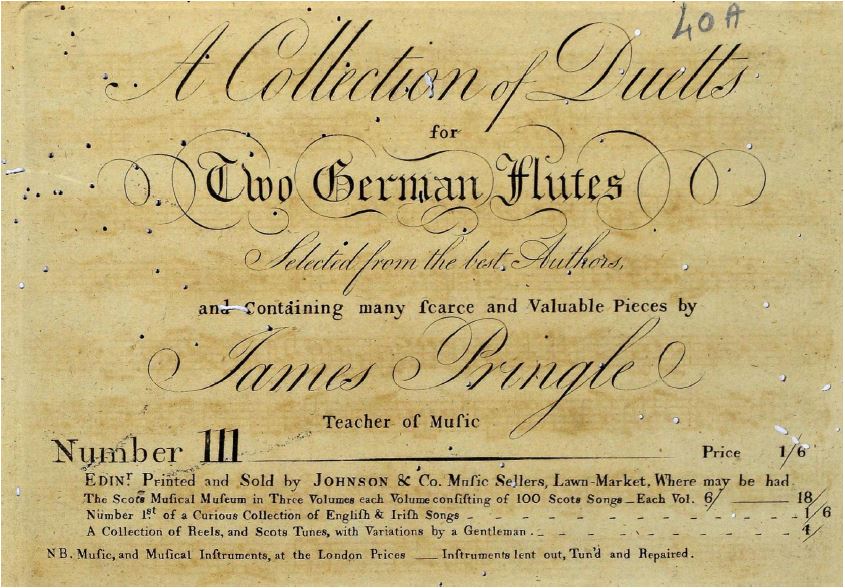 40A
A Collection of Duetts
for
Two German Flutes
Selected from the best Authors,
and Containing many ſcarce and Valuable Pieces by
James Pringle
Teacher of Muſic
Number III Price 1/6
EDINʳ Printed and Sold by JOHNSON & Co. Muſic Sellers, Lawn-Market. Where may be had
The Scots Muſical Muſeum in Three Volumes each Volume conſiſting of 100 Scots Songs _ Each Vol. 6/ ___ 18/
Number 1.st of a Curious Collection of Engliſh & Iriſh Songs _ _ _ _ _ _ _ _ _ _ 1/6
A Collection of Reels, and Scots Tunes, with Variations by a Gentleman. _ _ _ _ _ _ _ _ 4/
NB. Muſic, and Muſical Inſtruments, at the London Prices __ Inſtruments lent out, Tun'd and Repaired.